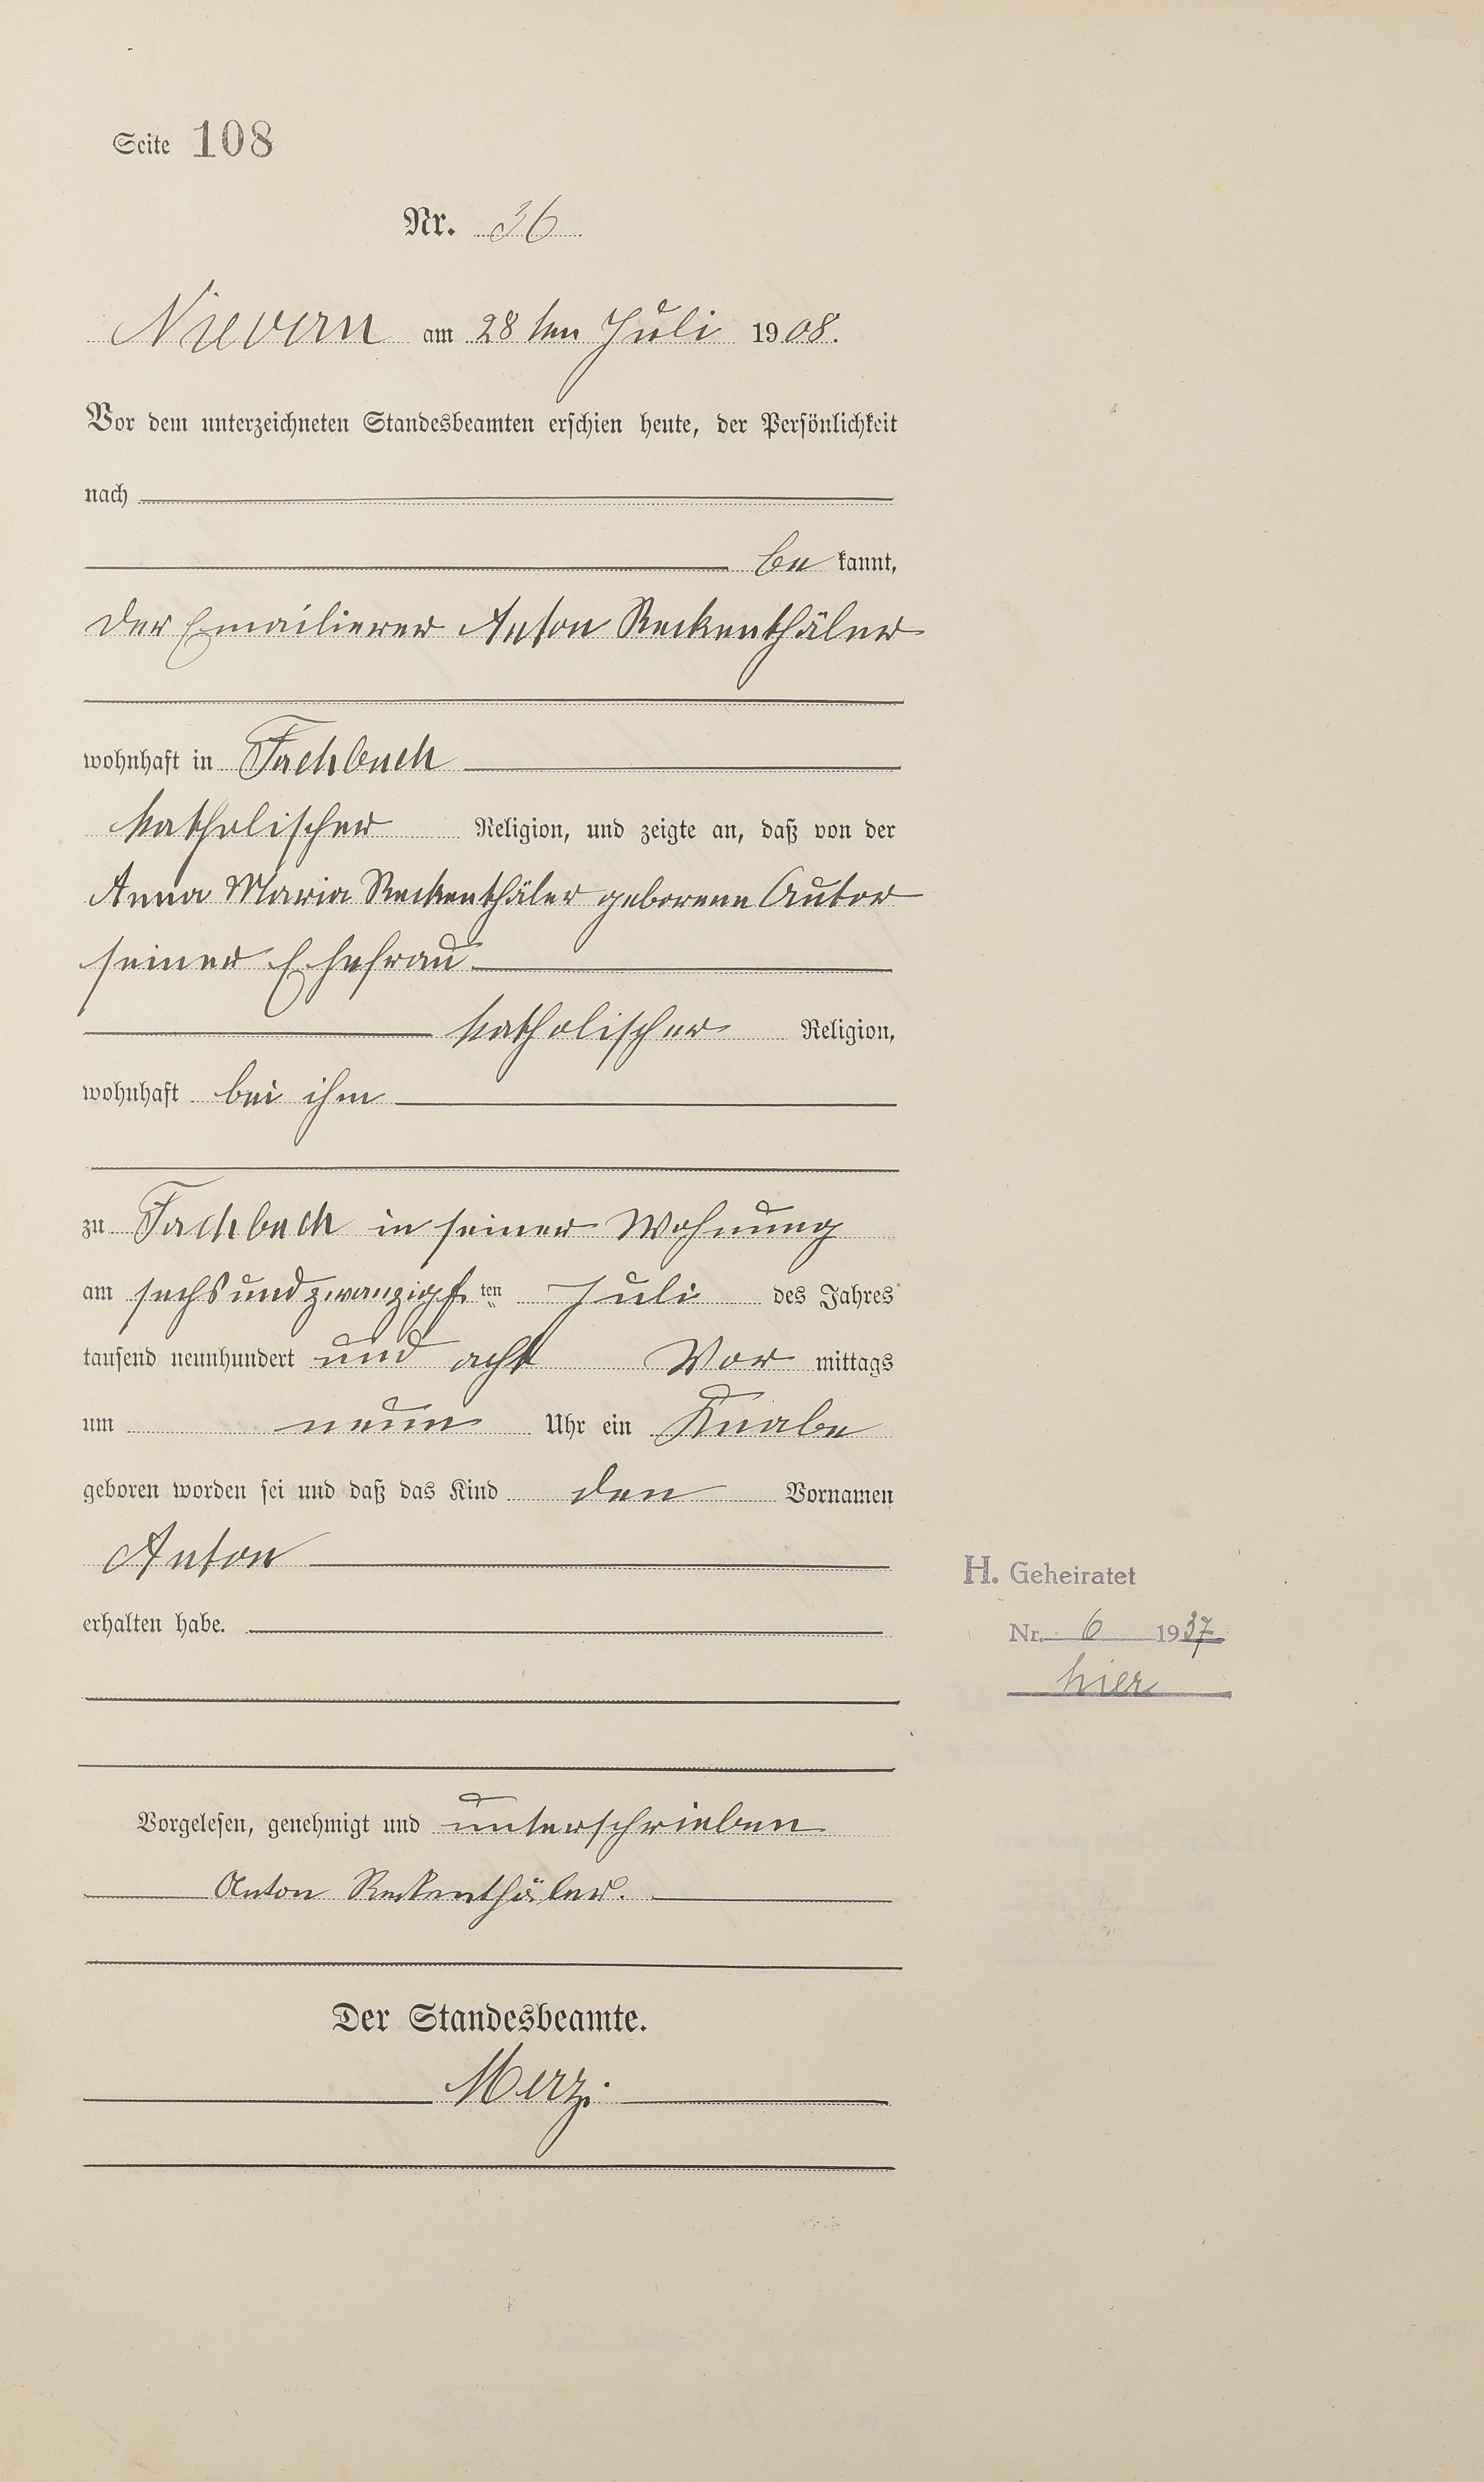 Seite 108
Nr. 36
Nievern am 28ten Juli 1908.
Vor dem unterzeichneten Standesbeamten erschien heute, der Persönlichkeit
nach
be kannt,
der Emailierer Anton Reckenthäler
wohnhaft in Fachbach
katholischer Religion, und zeigte an, daß von der
Anna Maria Reckenthäler geborene Autor
seiner Ehefrau
katholischer Religion,
wohnhaft bei ihm
zu Fachbach in seiner Wohnung
am sechsundzwanzigsten Juli des Jahres
tausend neunhundert und acht Vor mittags
um neun Uhr ein Knabe
geboren worden sei und daß das Kind den Vornamen
Anton
erhalten habe.
H. Geheiratet
Nr. 6 1937
hier
Vorgelesen, genehmigt und unterschrieben
Anton Reckenthäler.
Der Standesbeamte.
Merz.